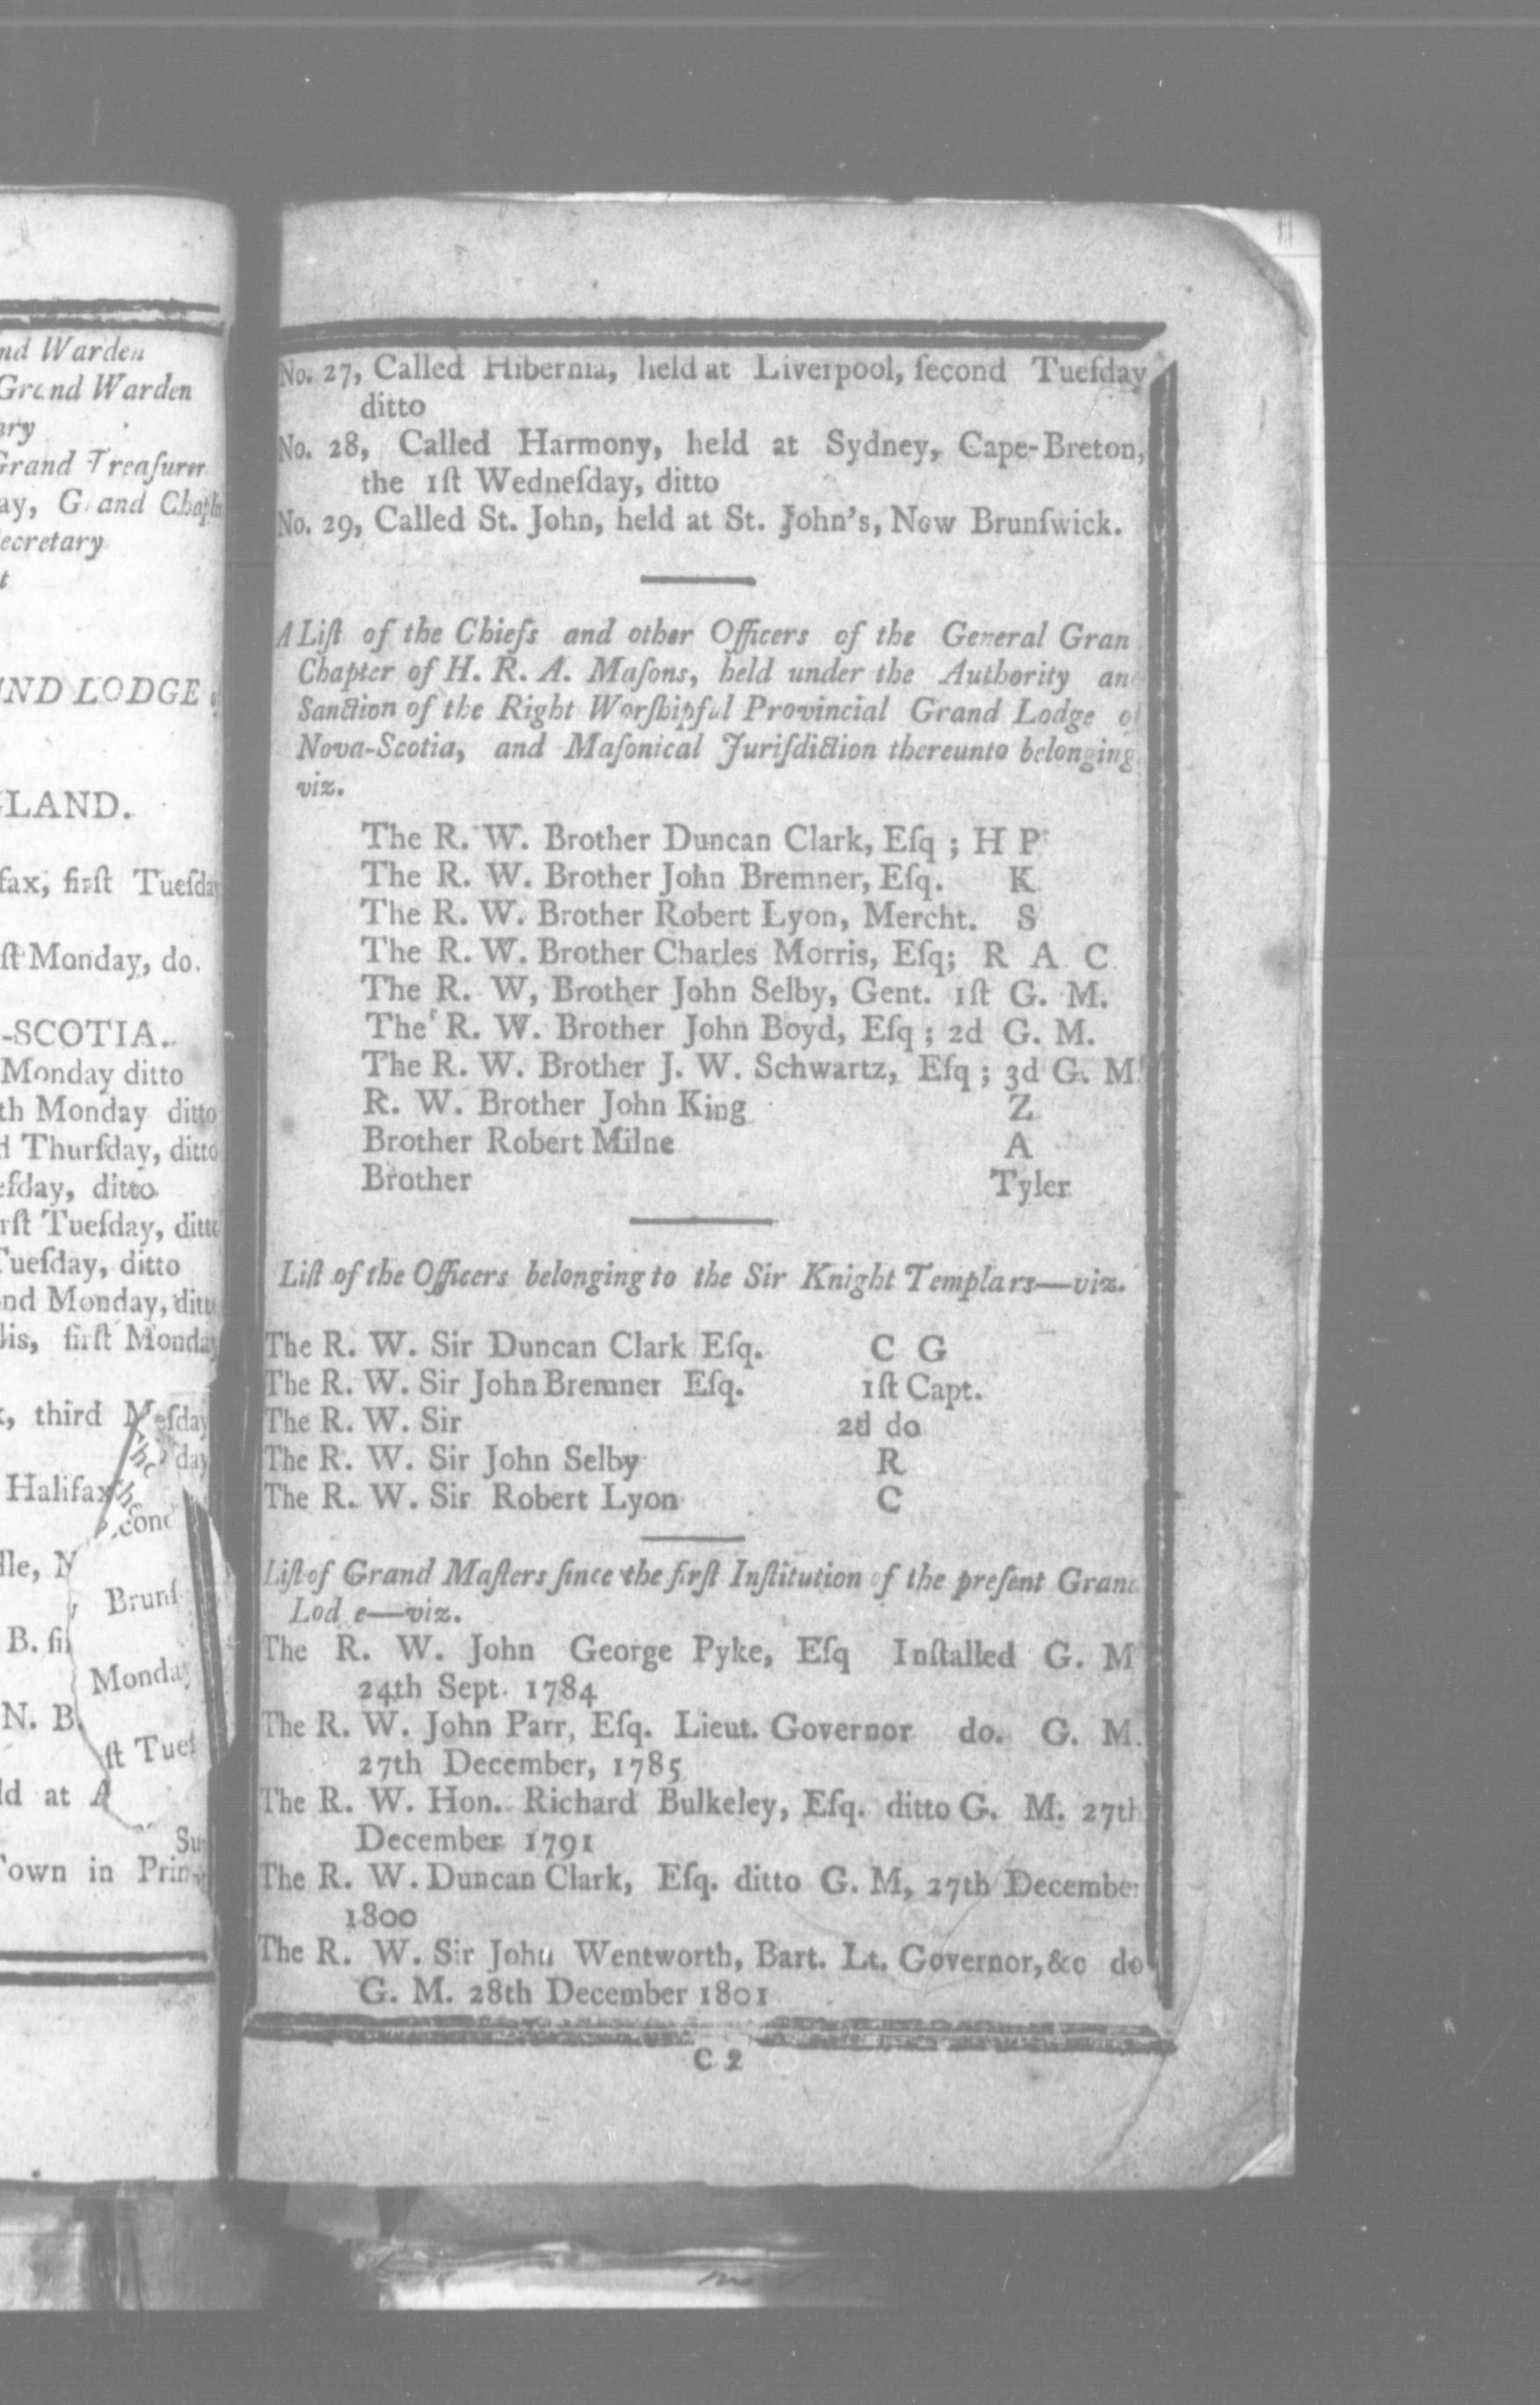 nd Warden
Grand Warden
ary
Grand Treaſurer
ay, G and Chapl
ecretary
t
ND LODGE
LAND.
fax, firſt Tueſday
ſt Monday, do.
-SCOTIA.
Monday ditto
th Monday ditto
d Thurſday, ditto
eſday, ditto
rſt Tueſday, ditto
Tueſday, ditto
ond Monday, ditto
lis, firſt Monday
third
eſday
day
Halifax
cond
lle, N
Brunſ
B. fi
Monday
N. B.
ſt Tueſ
ld at A
Su-
Town in Prin
No. 27, Called Hibernia, held at Liverpool, ſecond Tueſday
ditto
No. 28, Called Harmony, held at Sydney, Cape-Breton,
the 1ſt Wedneſday, ditto
No. 29, Called St. John, held at St. John's, New Brunſwick.
A Liſt of the Chiefs and other Officers of the General Gran
Chapter of H. R. A. Maſons, held under the Authority an
Sanction of the Right Worſhipful Provincial Grand Lodge of
Nova-Scotia, and Maſonical Juriſdiction thereunto belonging
viz.
The R. W. Brother Duncan Clark, Eſq ; H P
The R. W. Brother John Bremner, Eſq. K
The R. W. Brother Robert Lyon, Mercht. S
The R. W. Brother Charles Morris, Eſq; R A C
The R. W, Brother John Selby, Gent. 1ſt G. M.
The R. W. Brother John Boyd, Eſq ; 2d G. M.
The R. W. Brother J. W. Schwartz, Eſq ; 3d G. M.
R. W. Brother John King Z
Brother Robert Milne A
Brother Tyler
Liſt of the Officers belonging to the Sir Knight Templars—viz.
The R. W. Sir Duncan Clark Eſq. C G
The R. W. Sir John Bremner Eſq. 1ſt Capt.
The R. W. Sir 2d do
The R. W. Sir John Selby R
The R. W. Sir Robert Lyon C
Liſt of Grand Maſters ſince the firſt Inſtitution of the preſent Grand
Lod e—viz.
The R. W. John George Pyke, Eſq Inſtalled G. M
24th Sept. 1784
The R. W. John Parr, Eſq. Lieut. Governor do. G. M.
27th December, 1785
The R. W. Hon. Richard Bulkeley, Eſq. ditto G. M. 27th
December 1791
The R. W. Duncan Clark, Eſq. ditto G. M, 27th December
1800
The R. W. Sir John Wentworth, Bart. Lt. Governor, &c do
G. M. 28th December 1801
C 2